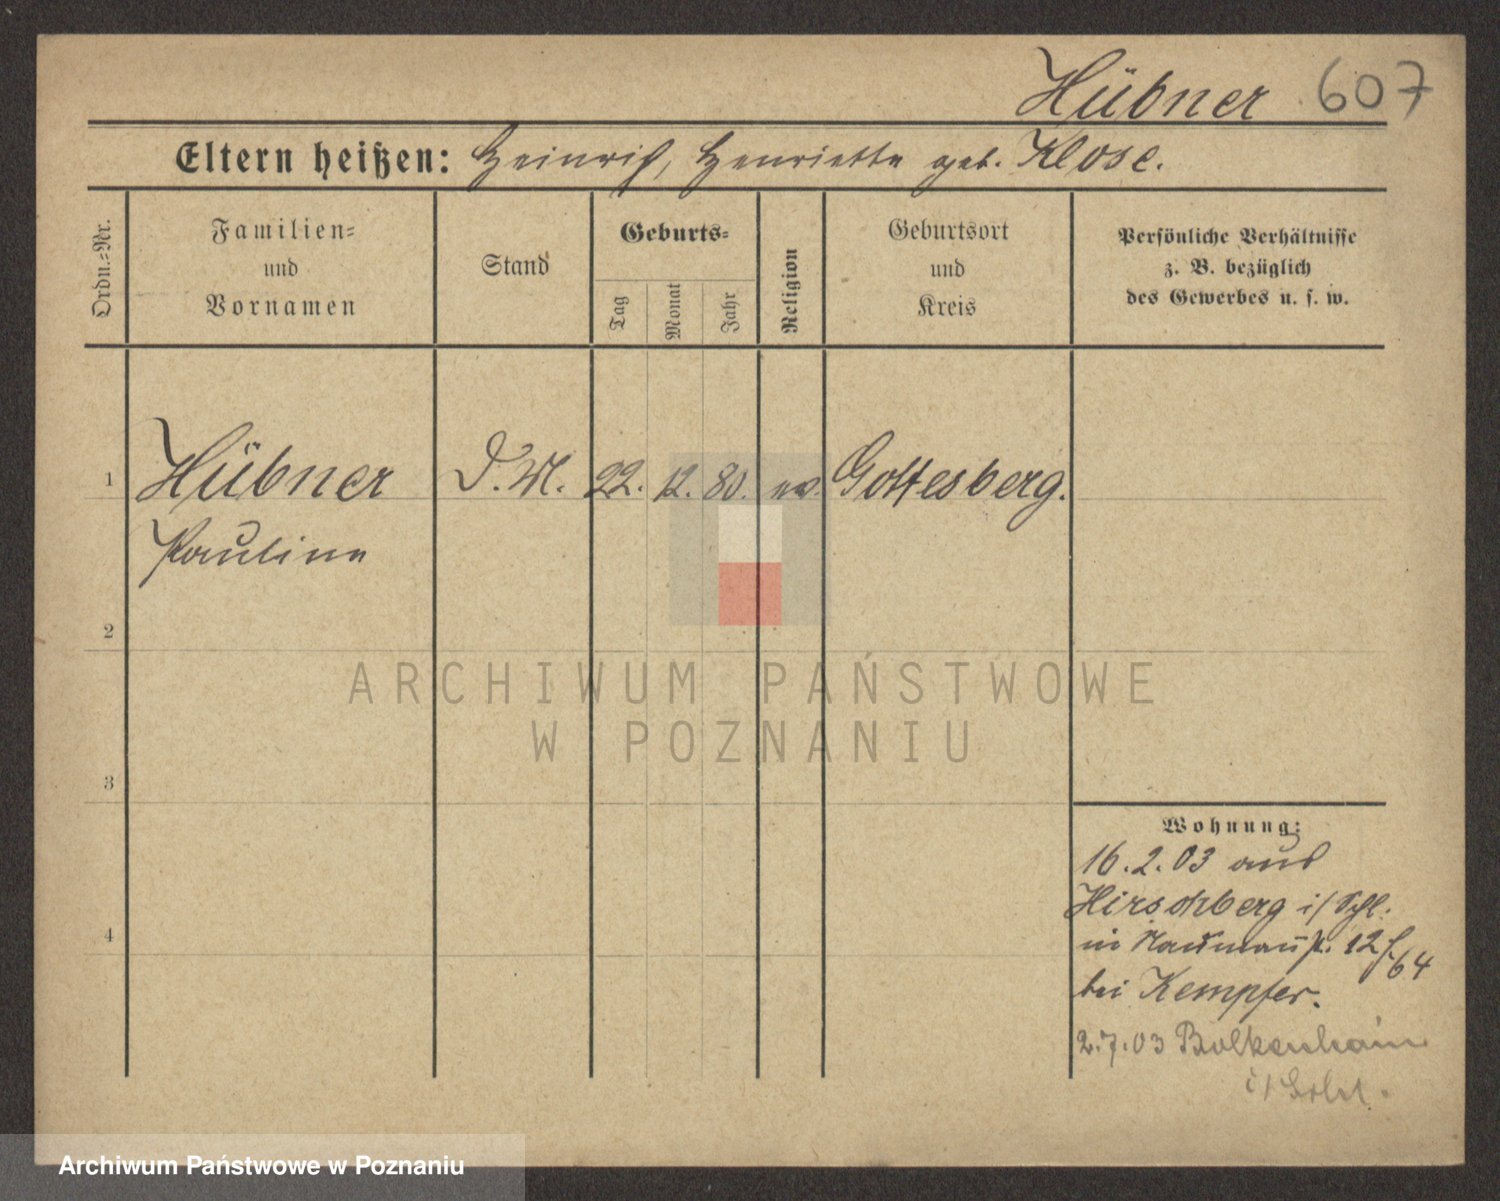 Hübner 607
Eltern heißen: Heinrich, Henriette geb. Klose.
Ordn.=Nr.
Familien=
und
Vornamen
Stand
Geburts=
Tag
Monat
Jahr
Religion
Geburtsort
und
Kreis
Persönliche Verhältnisse
z. B. bezüglich
des Gewerbes u. s. w.
1 Hübner D.M. 22. 12. 80. ev. Gottesberg.
Pauline
2
3
4
Wohnung:
16.2.03 aus
Hirschberg i/Schl.
in Naumannstr. 12
64
bei Kempfer.
2.7.03 Bolkenhain
i/Schl.
ARCHIWUM PAŃSTWOWE
W POZNANIU
Archiwum Państwowe w Poznaniu